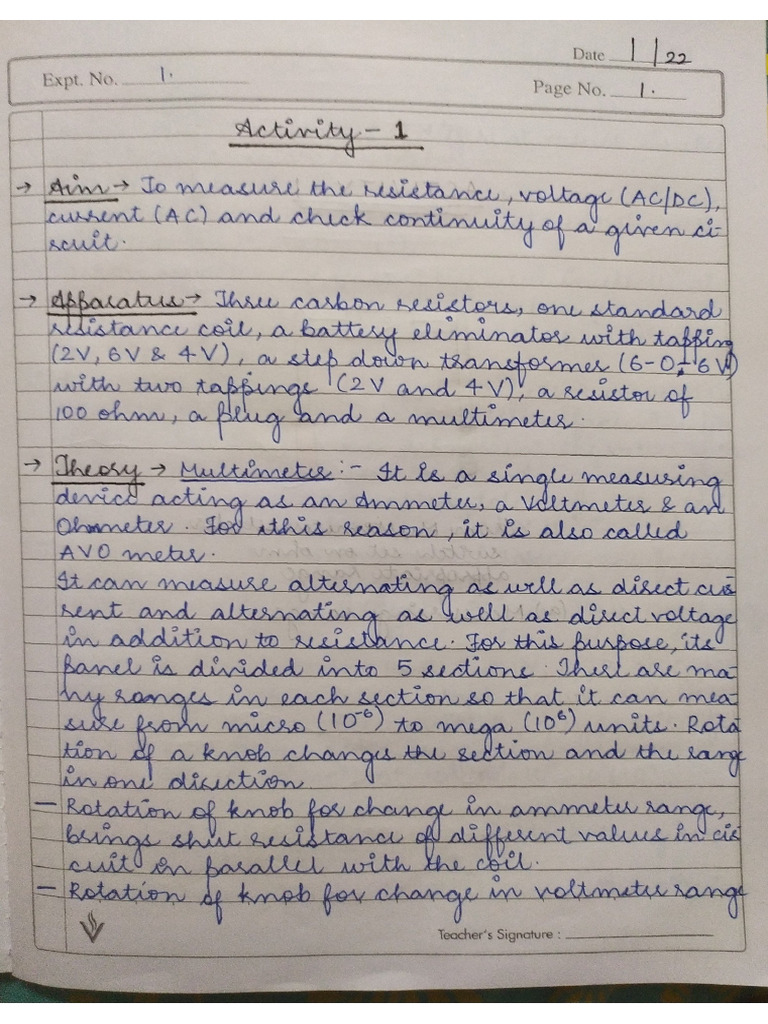 Date 1/22
Expt. No. 1.
Page No. 1.
Activity - 1
→ Aim → To measure the resistance, voltage (AC/DC),
current (AC) and check continuity of a given ci-
rcuit.
→ Apparatus → Three carbon resistors, one standard
resistance coil, a battery eliminator with tapping
(2V, 6V & 4V), a step down transformer (6-0-6V)
with two tappings (2V and 4V), a resistor of
100 ohm, a plug and a multimeter.
→ Theory → Multimeter :- It is a single measuring
device acting as an Ammeter, a Voltmeter & an
Ohmmeter. For this reason, it is also called
AVO meter.
It can measure alternating as well as direct cur-
rent and alternating as well as direct voltage
in addition to resistance. For this purpose, its
panel is divided into 5 sections. There are ma-
ny ranges in each section so that it can mea-
sure from micro (10⁻⁶) to mega (10⁶) units. Rota
tion of a knob changes the section and the range
in one direction.
— Rotation of knob for change in ammeter range,
brings shut resistance of different values in cir
cuit in parallel with the coil.
— Rotation of knob for change in voltmeter range
Teacher's Signature :